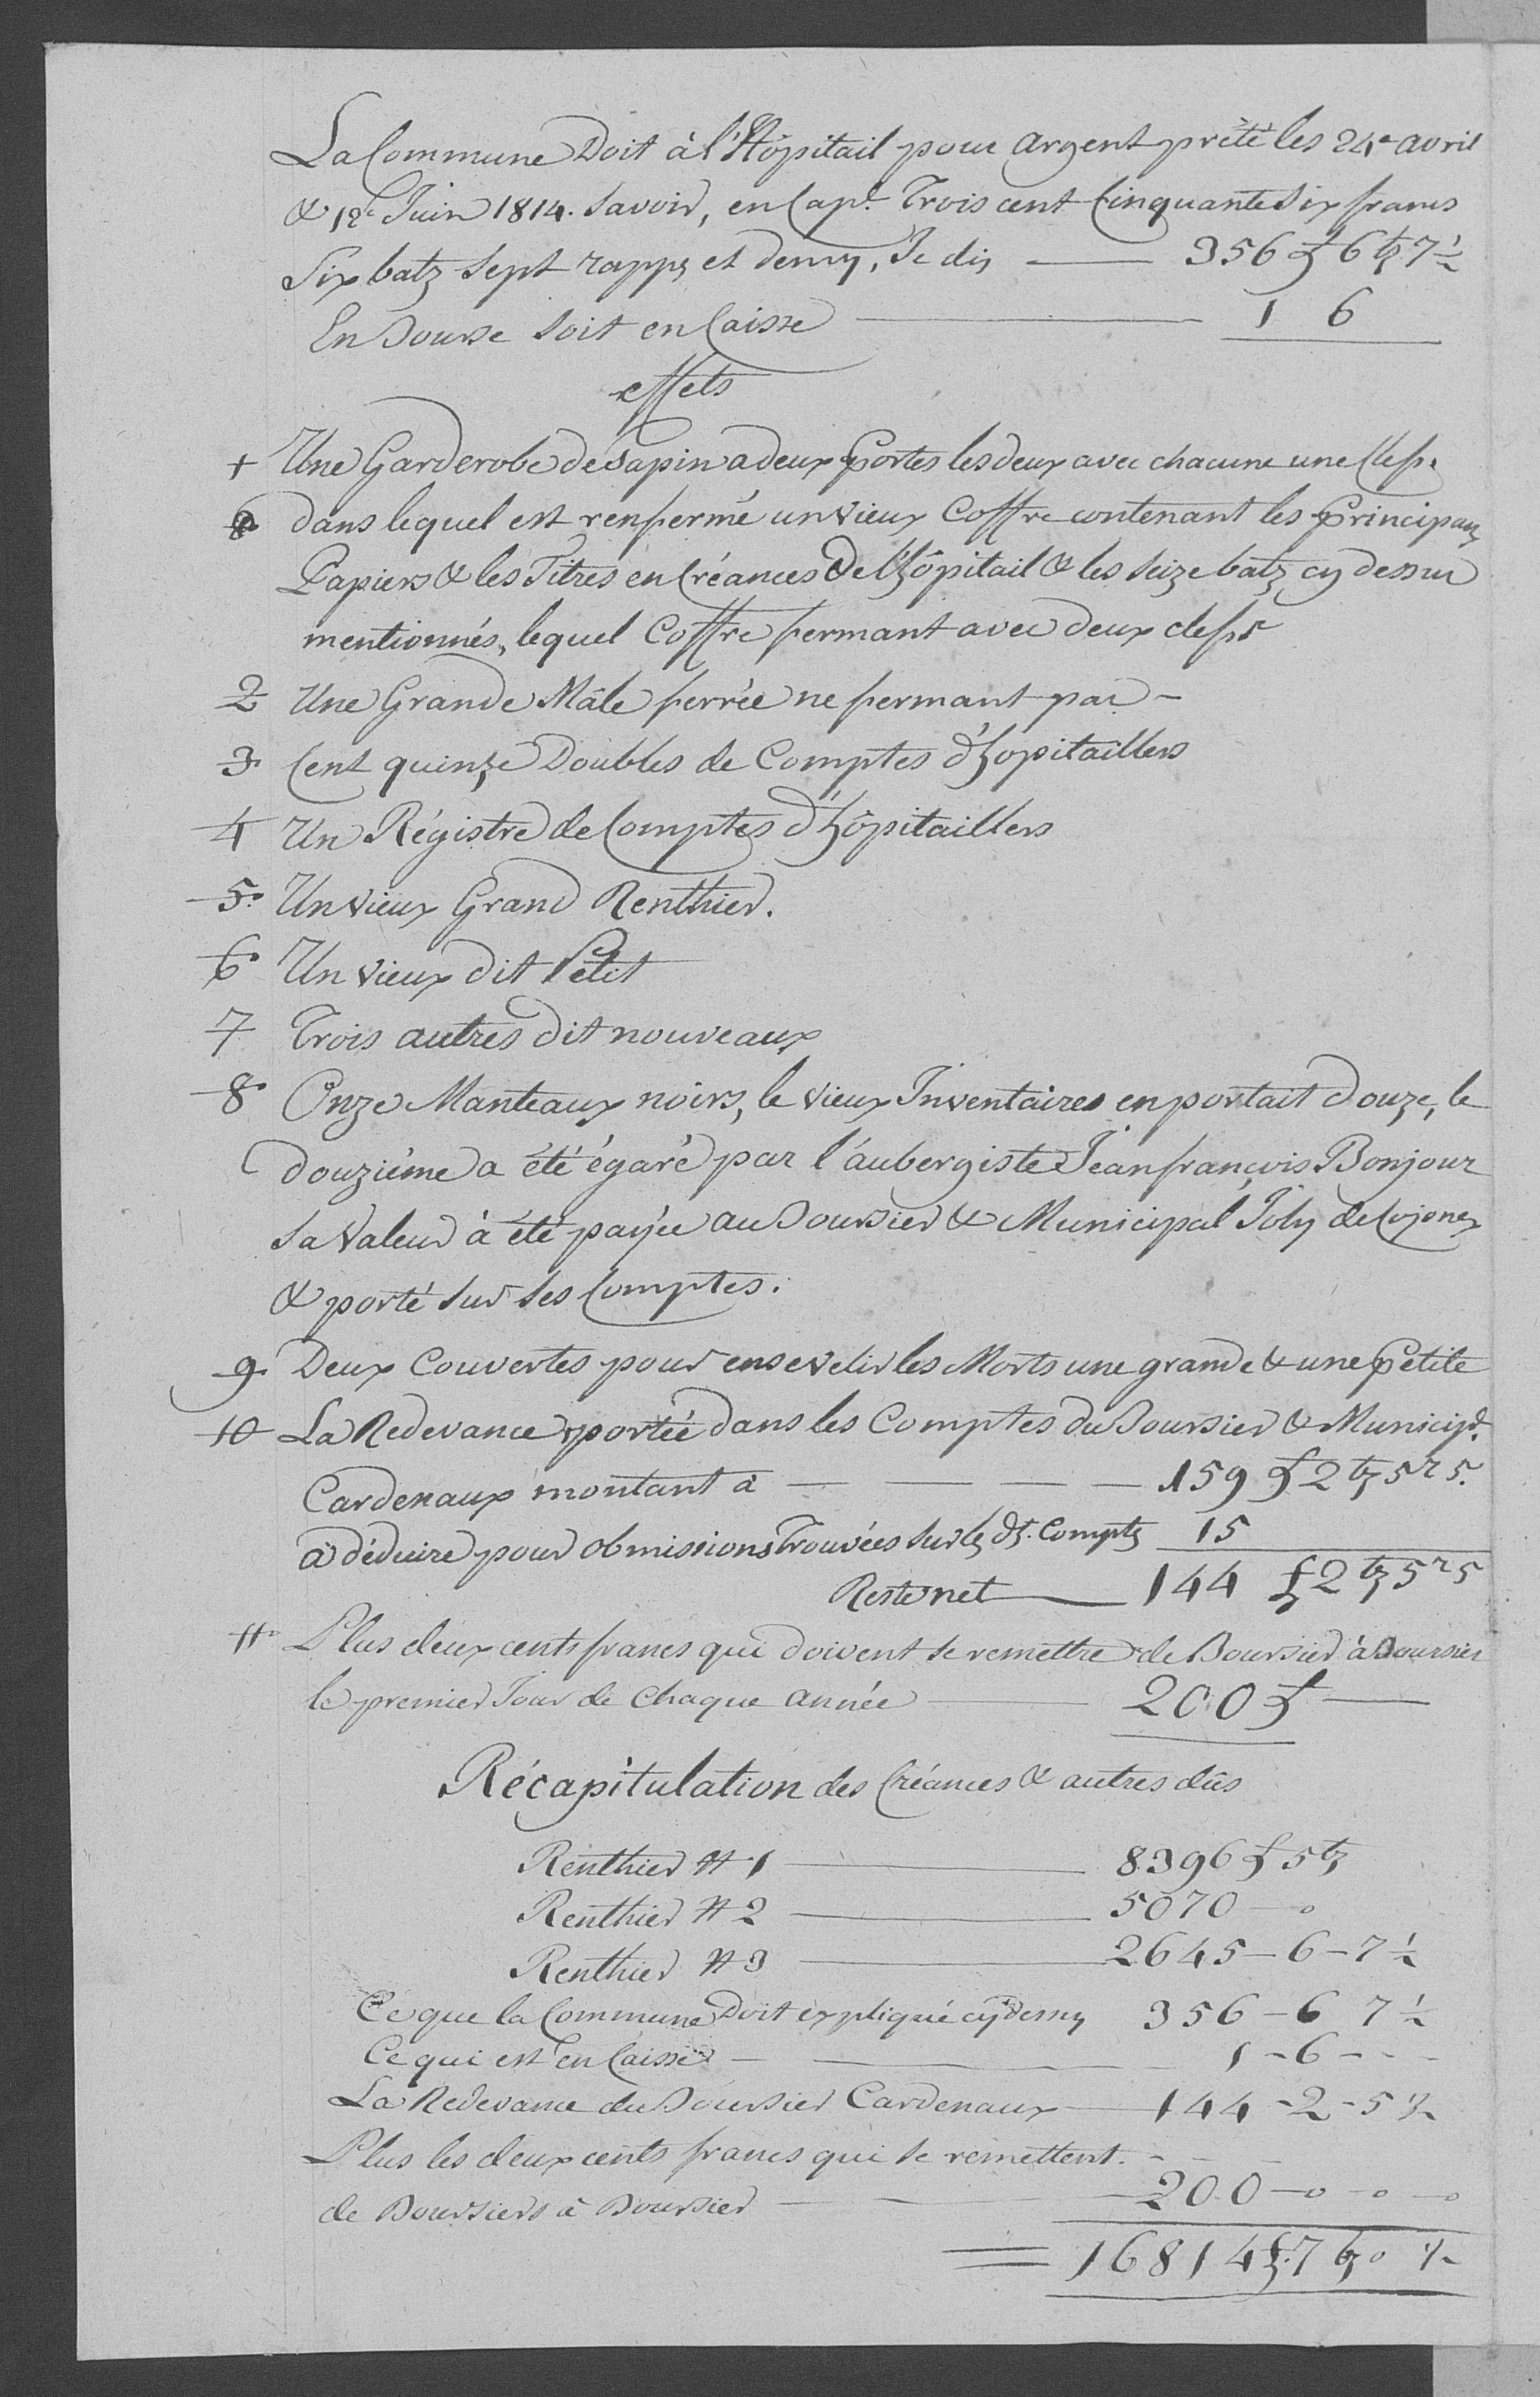 La Commune Doit à l'Hôpitail pour argent prêté les 24e avril
& 12e Juin 1814. Savoir, en Capl. Trois cent Cinquante Six francs
Six batz Sept rapps et demy, Je dis — 356 £ 6 bz 7 ½
En Bourse Soit en Caisse — 1 6
effets
1 Une Garderobe de Sapin a deux Portes les deux avec chacune une Clef.
dans lequel est renfermé un vieux Coffre contenant les Principaux
Papiers & les Titres en Créances de l'hôpitail & les Seize batz cy dessus
mentionnés, lequel Coffre fermant avec deux clefs
2 Une Grande Mâle ferrée ne fermant pas –
3 Cent quinze Doubles de Comptes d'hopitaillers
4 Un Régistre de Comptes d'hôpitaillers
5. Un vieux Grand Renthier.
6 Un vieux dit Petit
7 Trois autres dit nouveaux
8 Onze Manteaux noirs, le vieux Inventaires en portait Douze, le
douziéme a été égaré par l'aubergiste Jeanfrançois Bonjour
Sa Valeur à été payée au Boursier & Municipal Joly de Cojonex
& porté Sur Ses Comptes.
9. Deux Couvertes pour ensevelir les Morts une grande & une Petite
10 La Redevance portée dans les Comptes du Boursier & Municipl.
Cardenaux montant à — — — 159 £ 2 bz 5 r 5.
à déduire pour obmissions Trouvées Sur les dt. Compts 15
Reste net — 144 £ 2 bz 5 r 5
11 Plus deux cents francs qui doivent se remettre de Boursier à Boursier
le premier Jour de chaque année — 200 £ —
Récapitulation des Créances & autres dûs
Renthier N 1 — 8396 £ 5 bz
Renthier N 2 — 5070 — 0
Renthier N 3 — 2645 – 6 – 7 ½
Ce que la Commune Doit expliqué cy dessus 356 – 6 7 ½
Ce qui est en Caisse — 1 – 6 - - -
La Redevance du Boursier Cardenaux — 144 - 2 - 5 ½
Plus les deux cents francs qui se remettent. - - -
de Boursiers à Boursier — 200 – 0 – 0 – 0
= 16814 £ 7 bz 0 ½